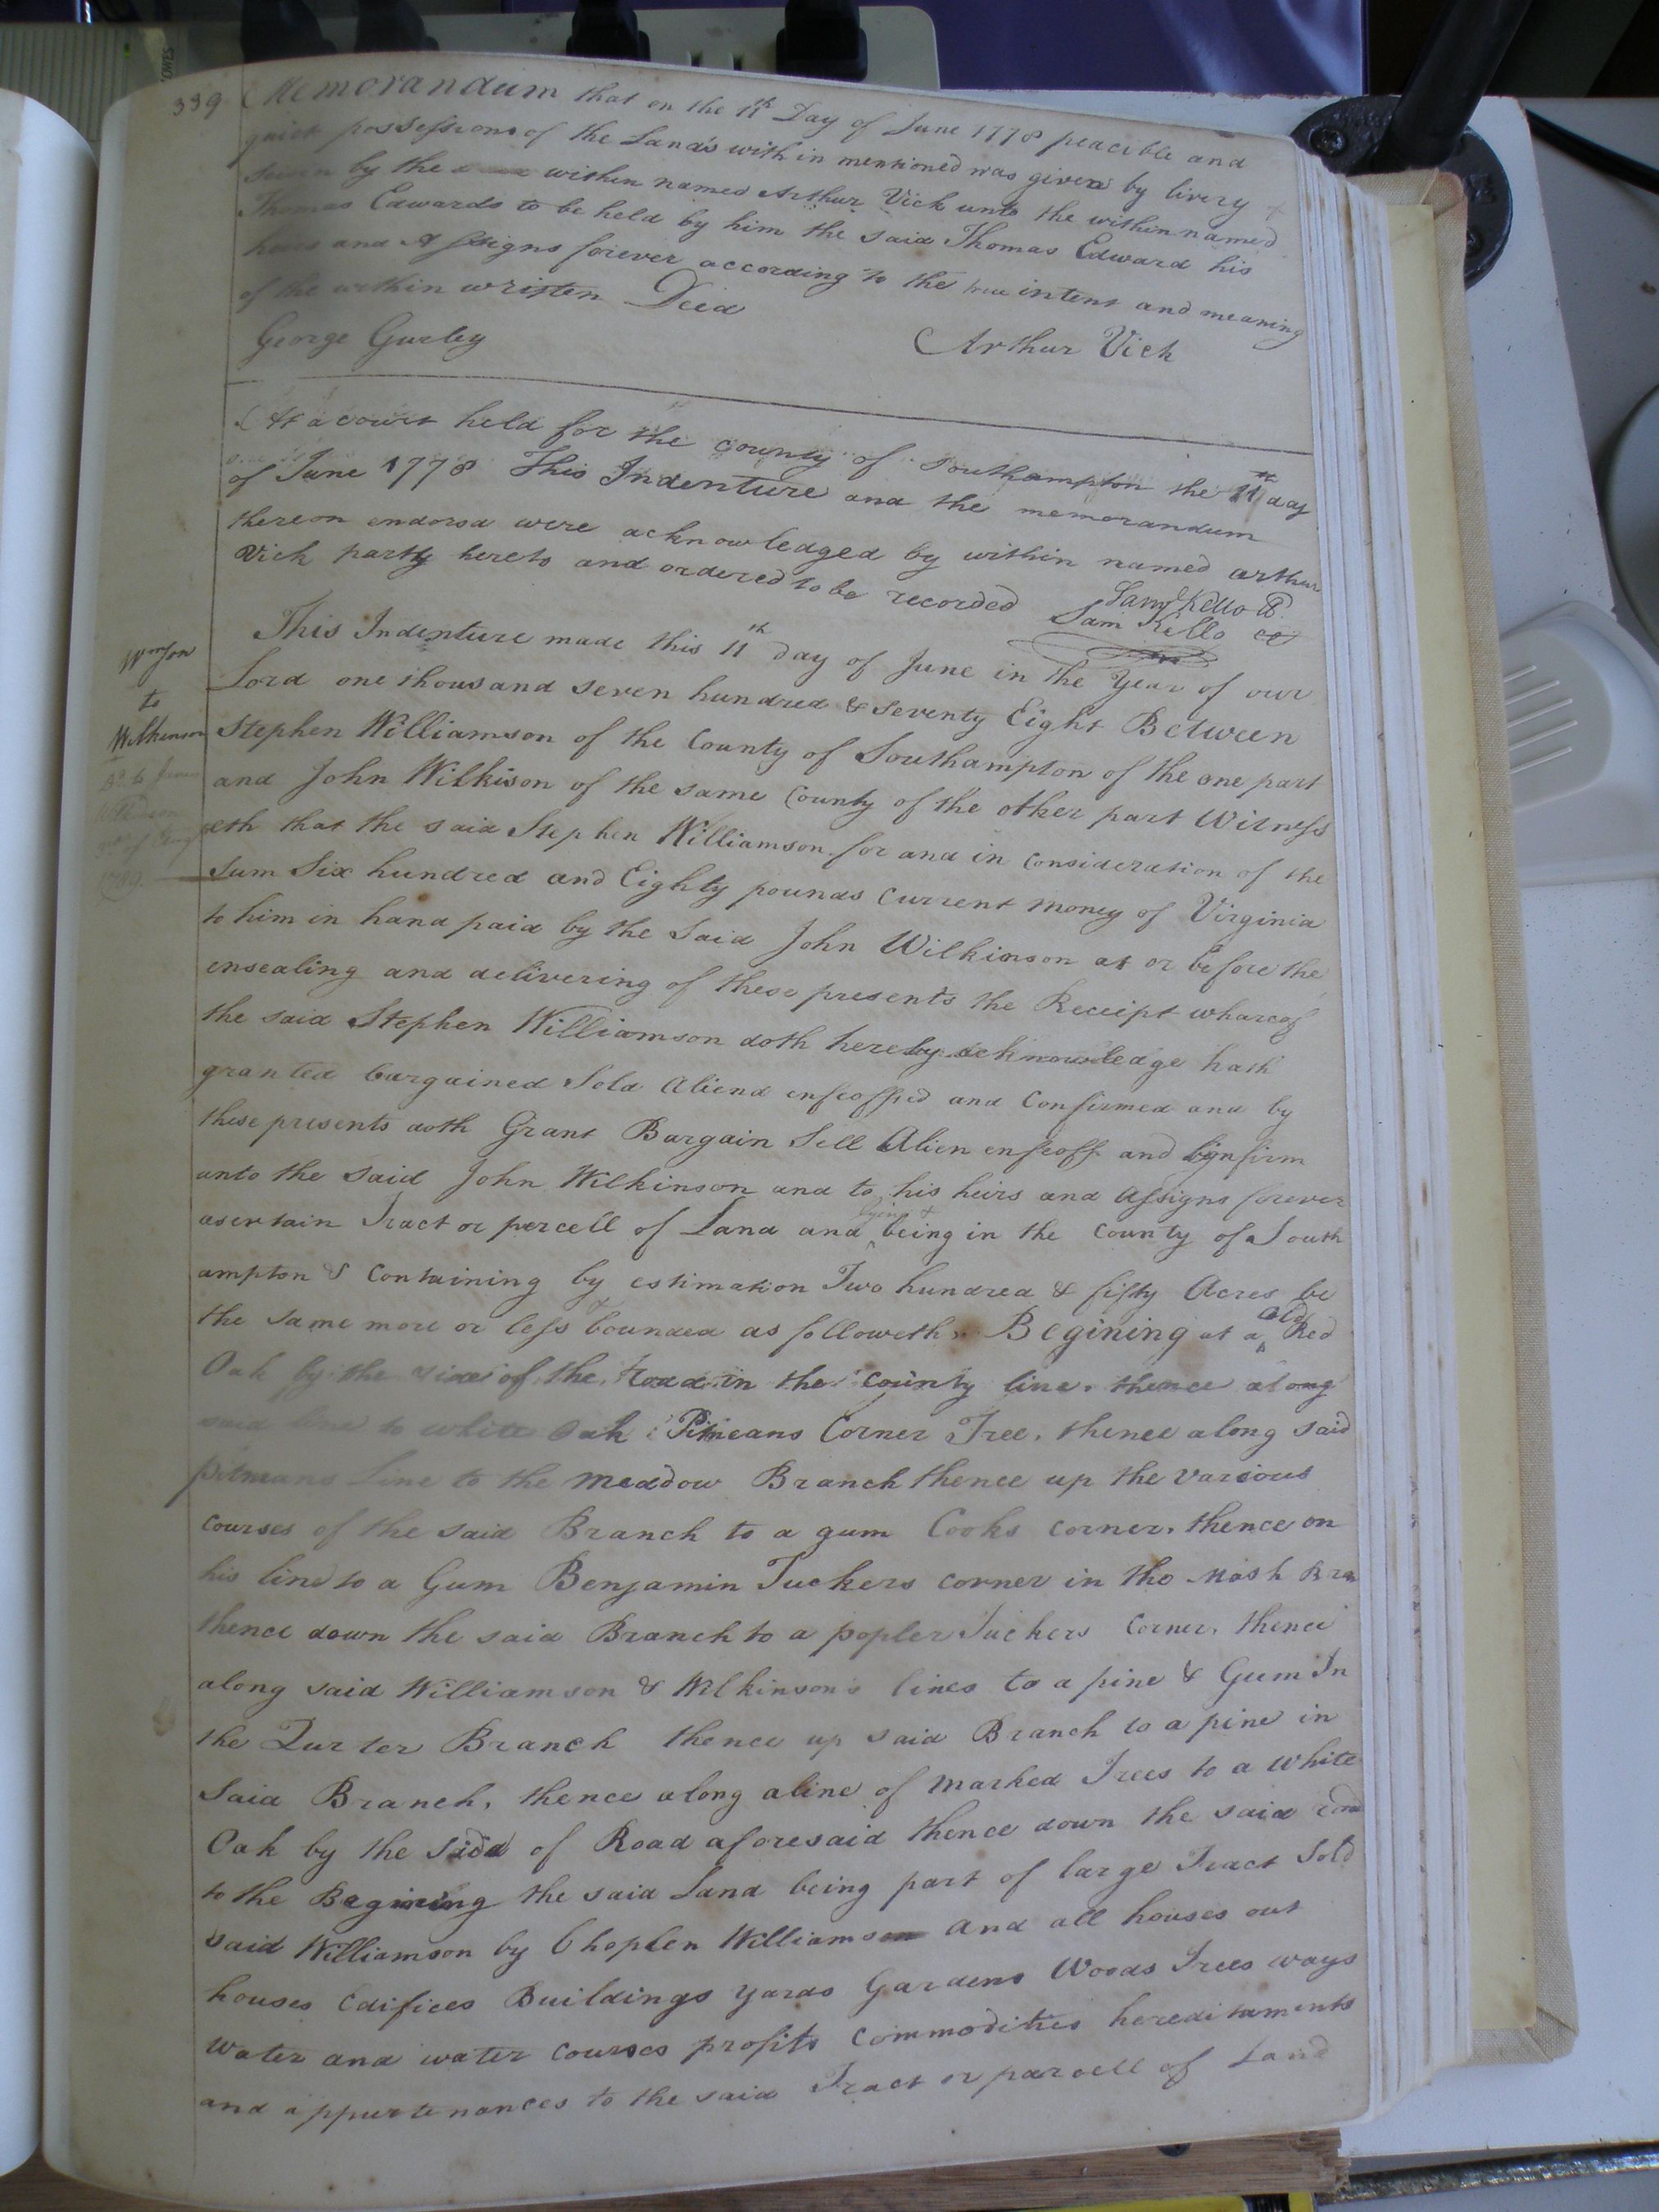 339 Memorandum that on the 11th Day of June 1778 peacible and
quiet possession of the Lands within mentioned was given by livery &
seisin by the within named Arthur Vick unto the within named
Thomas Edwards to be held by him the said Thomas Edward his
heirs and Assigns forever according to the true intent and meaning
of the within written Deed
George Gurley Arthur Vick
At a court held for the county of Southampton the 11th day
of June 1778 This Indenture and the memorandum
thereon endorsd were acknowledged by within named arthur
Vick party hereto and ordered to be recorded
Saml Kello
Sam Kello
This Indenture made this 11th day of June in the Year of our
Wmson
to
Wilkinson
Lord one thousand seven hundred & seventy Eight Between
Stephen Williamson of the County of Southampton of the one part
and John Wilkison of the same County of the other part Witness
eth that the said Stephen Williamson for and in Consideration of the
Sum Six hundred and Eighty pounds Current money of Virginia
to him in hand paid by the Said John Wilkinson at or before the
ensealing and delivering of these presents the Receipt whareof
the said Stephen Williamson doth hereby acknowledge hath
granted bargained Sold Aliend enfeoffed and Confirmed and by
these presents doth Grant Bargain Sell Alien enfeoff and Confirm
unto the said John Wilkinson and to his heirs and Assigns forever
a certain Tract or percell of Land and lying & being in the County of South
ampton & Containing by estimation Two hundred & fifty Acres be
the same more or less bounded as followeth Begining at a old Red
Oak by the side of the road in the county line. thence along
said line to white Oak Pitmeans Corner Tree. thence along said
pitmeans Line to the meadow Branch thence up the various
courses of the said Branch to a gum Cooks corner. thence on
his line to a Gum Benjamin Tuckers corner in the Mash Bra
thence down the said Branch to a popler Tuckers Corner. thence
along said Williamson & Wilkinson's lines to a pine & Gum In
the Qurter Branch thence up said Branch to a pine in
Said Branch, thence along a line of marked Trees to a White
Oak by the Side of Road aforesaid thence down the said road
to the Begining the said Land being part of large Tract Sold
said Williamson by Choplen Williamson and all houses out
houses Edifices Buildings yards Gardens Woods Trees ways
water and water courses profits Commodities hereditaments
and appurtenances to the said Tract or parcell of Land